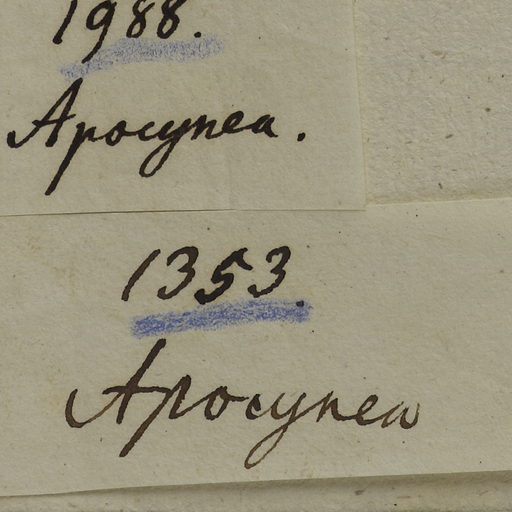 1988.
Apocynea.
1353.
Apocynea